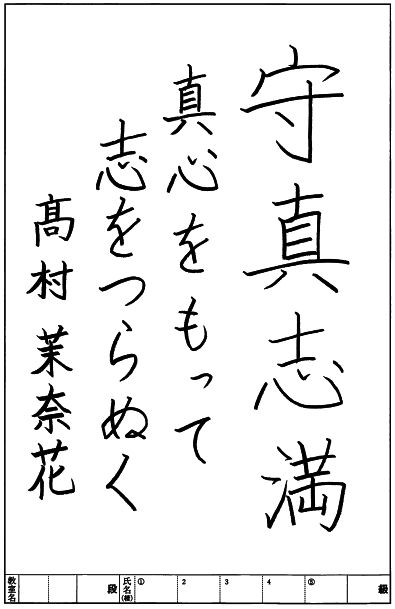 守真志満
真心をもって
志をつらぬく
髙村茉奈花
級 ⑤ 4 3 2 ① 氏名(種) 段 教室名